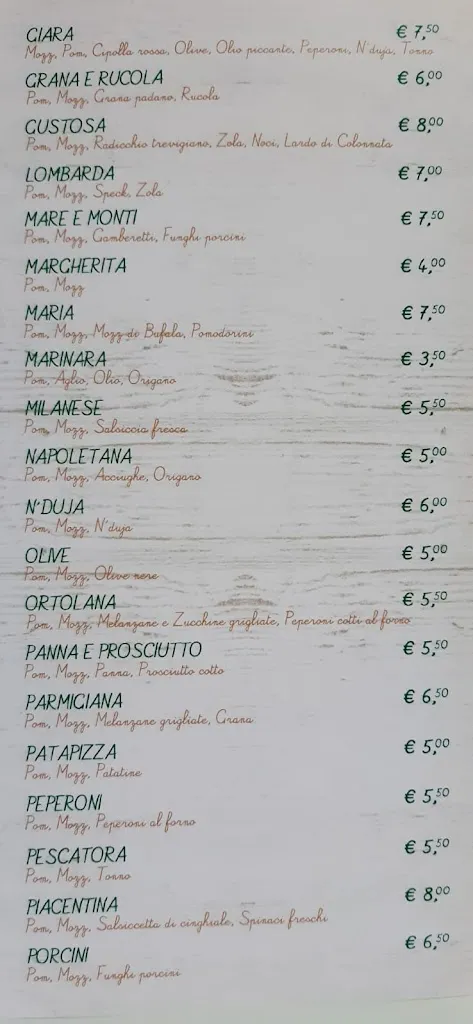 GIARA € 7,50
Mozz, Pom, Cipolla rossa, Olive, Olio piccante, Peperoni, N'duja, Tonno
GRANA E RUCOLA € 6,00
Pom, Mozz, Grana padano, Rucola
GUSTOSA € 8,00
Pom, Mozz, Radicchio trevigiano, Zola, Noci, Lardo di Colonnata
LOMBARDA € 7,00
Pom, Mozz, Speck, Zola
MARE E MONTI € 7,50
Pom, Mozz, Gamberetti, Funghi porcini
MARGHERITA € 4,00
Pom, Mozz
MARIA € 7,50
Pom, Mozz, Mozz di Bufala, Pomodorini
MARINARA € 3,50
Pom, Aglio, Olio, Origano
MILANESE € 5,50
Pom, Mozz, Salsiccia fresca
NAPOLETANA € 5,00
Pom, Mozz, Acciughe, Origano
N'DUJA € 6,00
Pom, Mozz, N'duja
OLIVE € 5,00
Pom, Mozz, Olive nere
ORTOLANA € 5,50
Pom, Mozz, Melanzane e Zucchine grigliate, Peperoni cotti al forno
PANNA E PROSCIUTTO € 5,50
Pom, Mozz, Panna, Prosciutto cotto
PARMIGIANA € 6,50
Pom, Mozz, Melanzane grigliate, Grana
PATAPIZZA € 5,00
Pom, Mozz, Patatine
PEPERONI € 5,50
Pom, Mozz, Peperoni al forno
PESCATORA € 5,50
Pom, Mozz, Tonno
PIACENTINA € 8,00
Pom, Mozz, Salsiccetta di cinghiale, Spinaci freschi
PORCINI € 6,50
Pom, Mozz, Funghi porcini